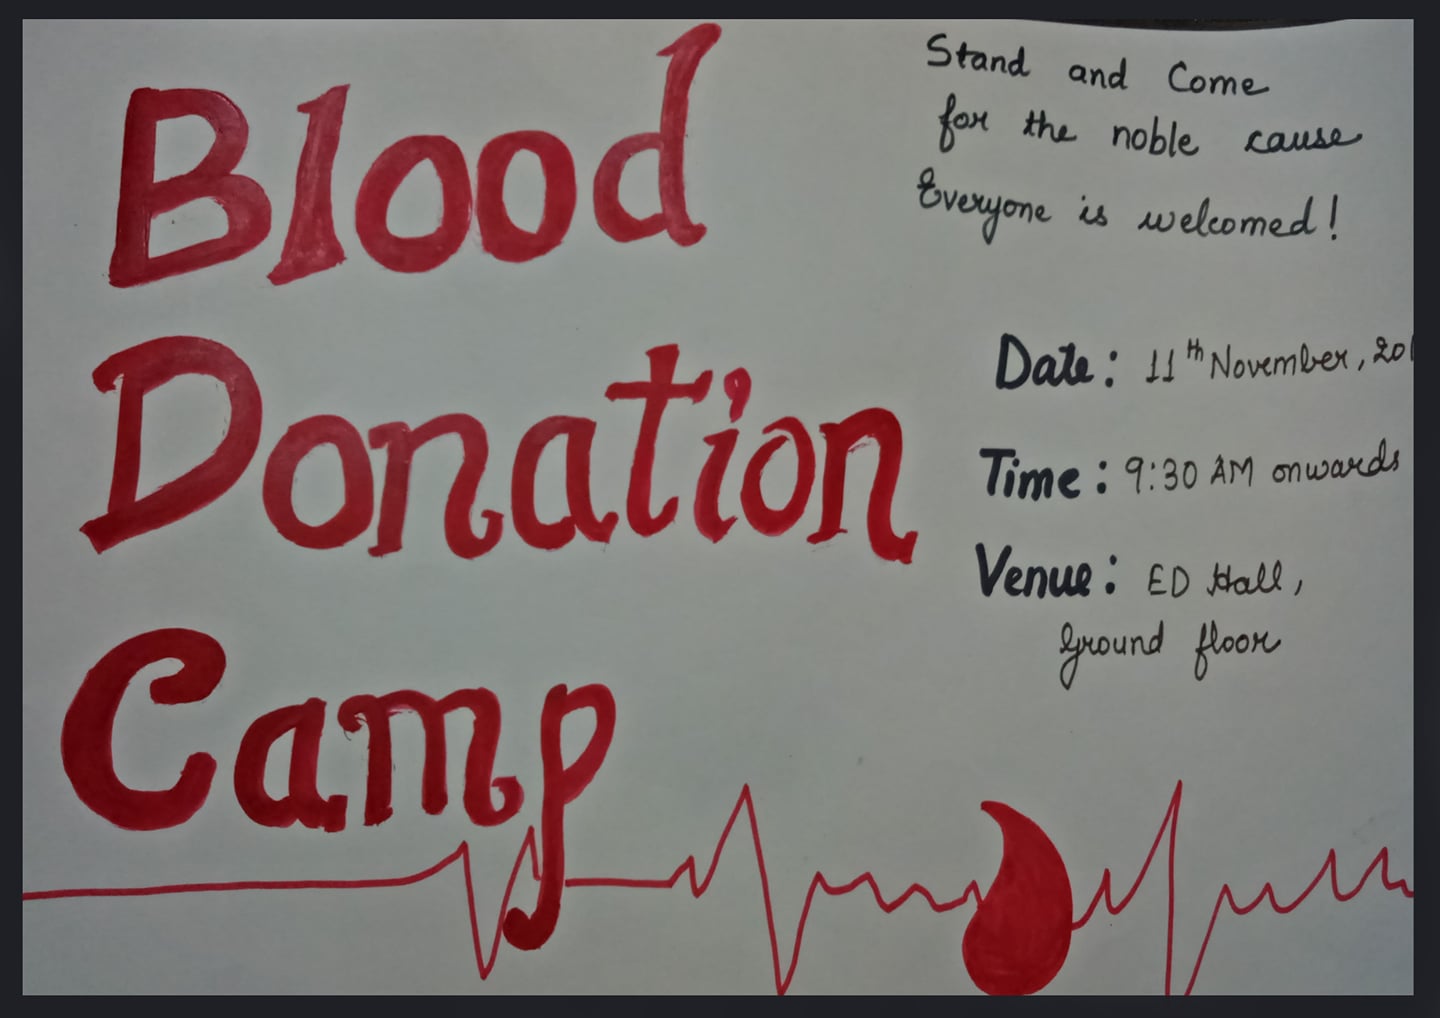 Blood
Donation
Camp
Stand and Come
for the noble cause
Everyone is welcomed!
Date: 11th November, 201
Time: 9:30 AM onwards
Venue: ED Hall,
Ground floor